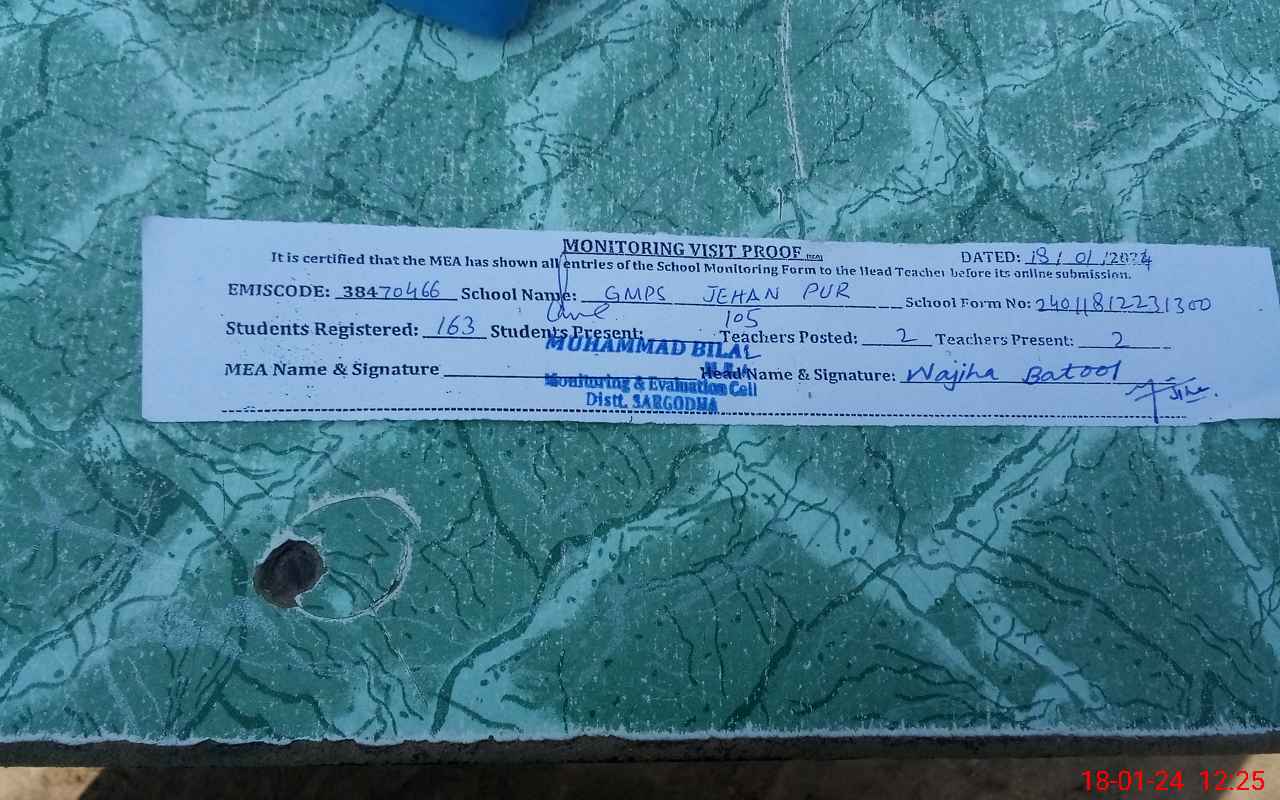 MONITORING VISIT PROOF
DATED: 18/01/2024
It is certified that the MEA has shown all entries of the School Monitoring Form to the Head Teacher before its online submission.
EMISCODE: 38470466 School Name: GMPS JEHAN PUR School Form No: 24011812231300
Students Registered: 163 Students Present: 105 Teachers Posted: 2 Teachers Present: 2
MUHAMMAD BILAL
MEA Name & Signature Head Name & Signature: Wajiha Batool
Monitoring & Evaluation Cell
Distt. SARGODHA
18-01-24 12.25